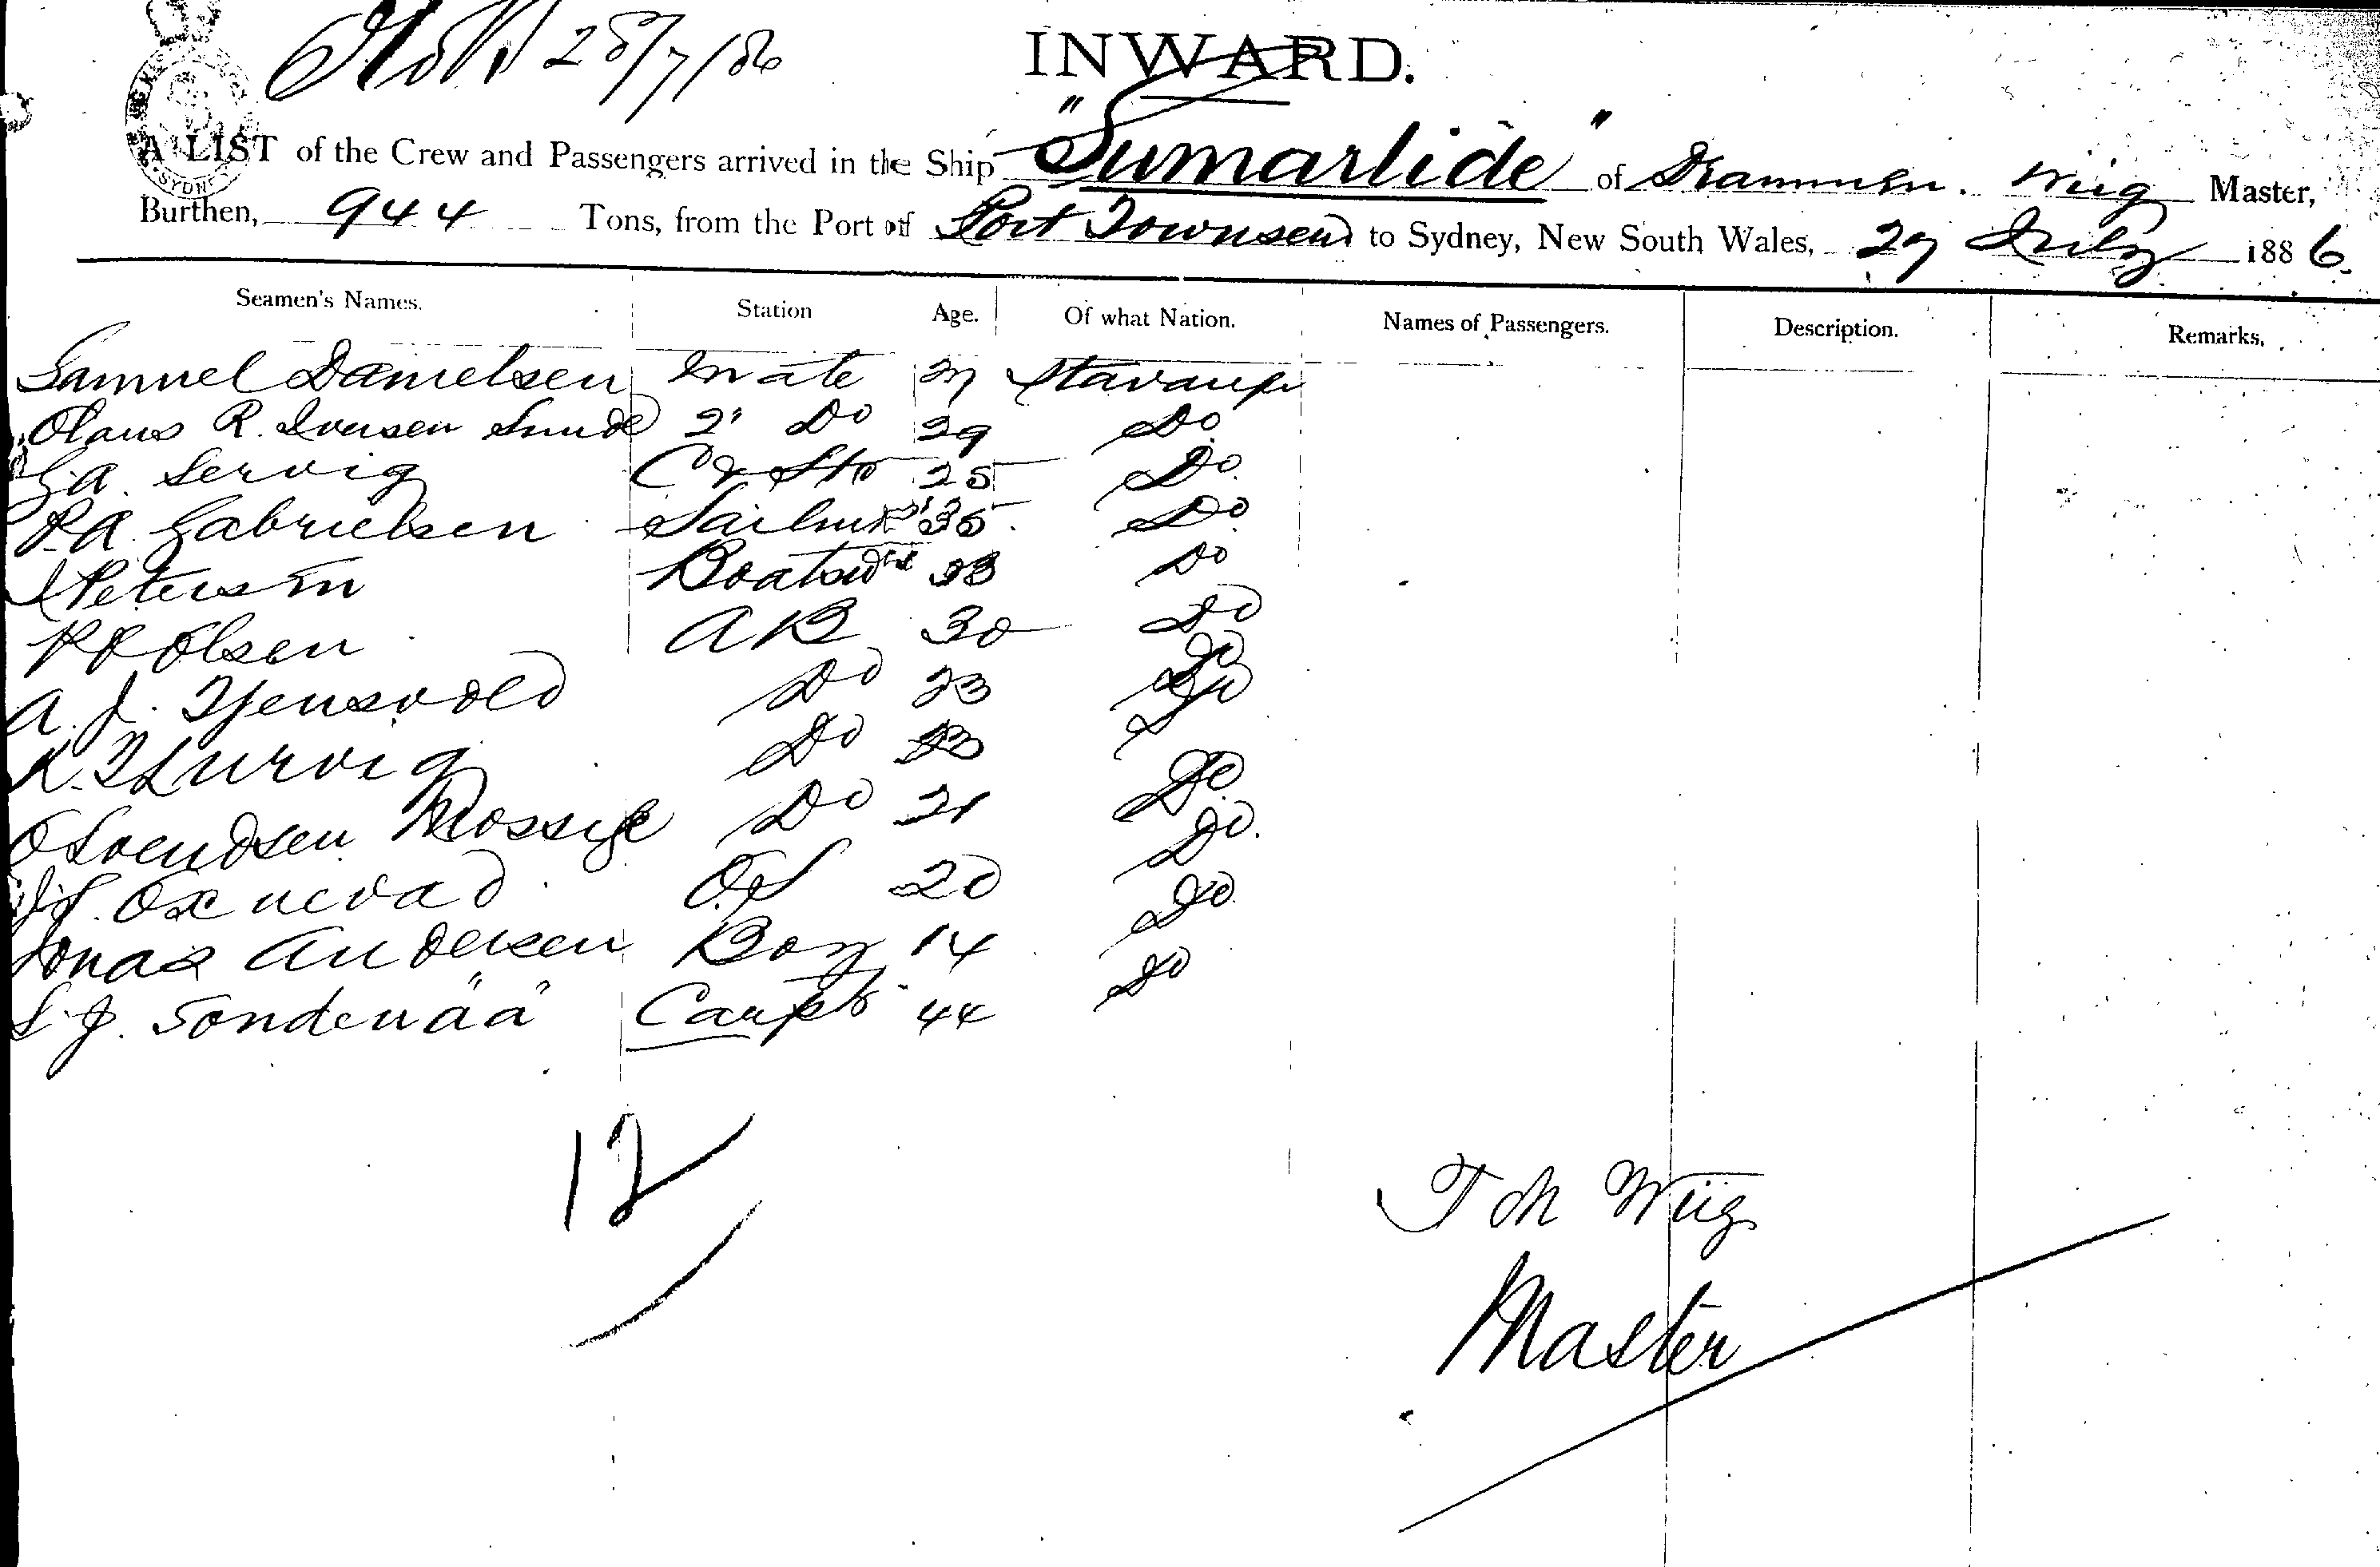 28/7/86
INWARD.
A LIST of the Crew and Passengers arrived in the Ship "Sumarlide" of Drammen. Wiig Master,
Burthen, 944 Tons, from the Port of Port Townsend to Sydney, New South Wales, 27 July 1886.
Seamen's Names. Station Age. Of what Nation. Names of Passengers. Description. Remarks.
Samuel Danielsen Mate Stavanger
Olaus R. Iversen Sunde 2d Do 29 Do
G A Servig C & Std 25 Do.
P.A. Gabrielsen Sailmkr 35 Do
Petersen Boatswn Do
Olsen AB 30 Do
A. J. Tjensvold Do 23 Do
K. Do
O Svendsen Mossige Do 21 Do
Oxnevad OS 20 Do.
Jonas Andersen Boy 14 Do.
S. J. Sondenåå Carptr 44 Do
12
Wiig
Master